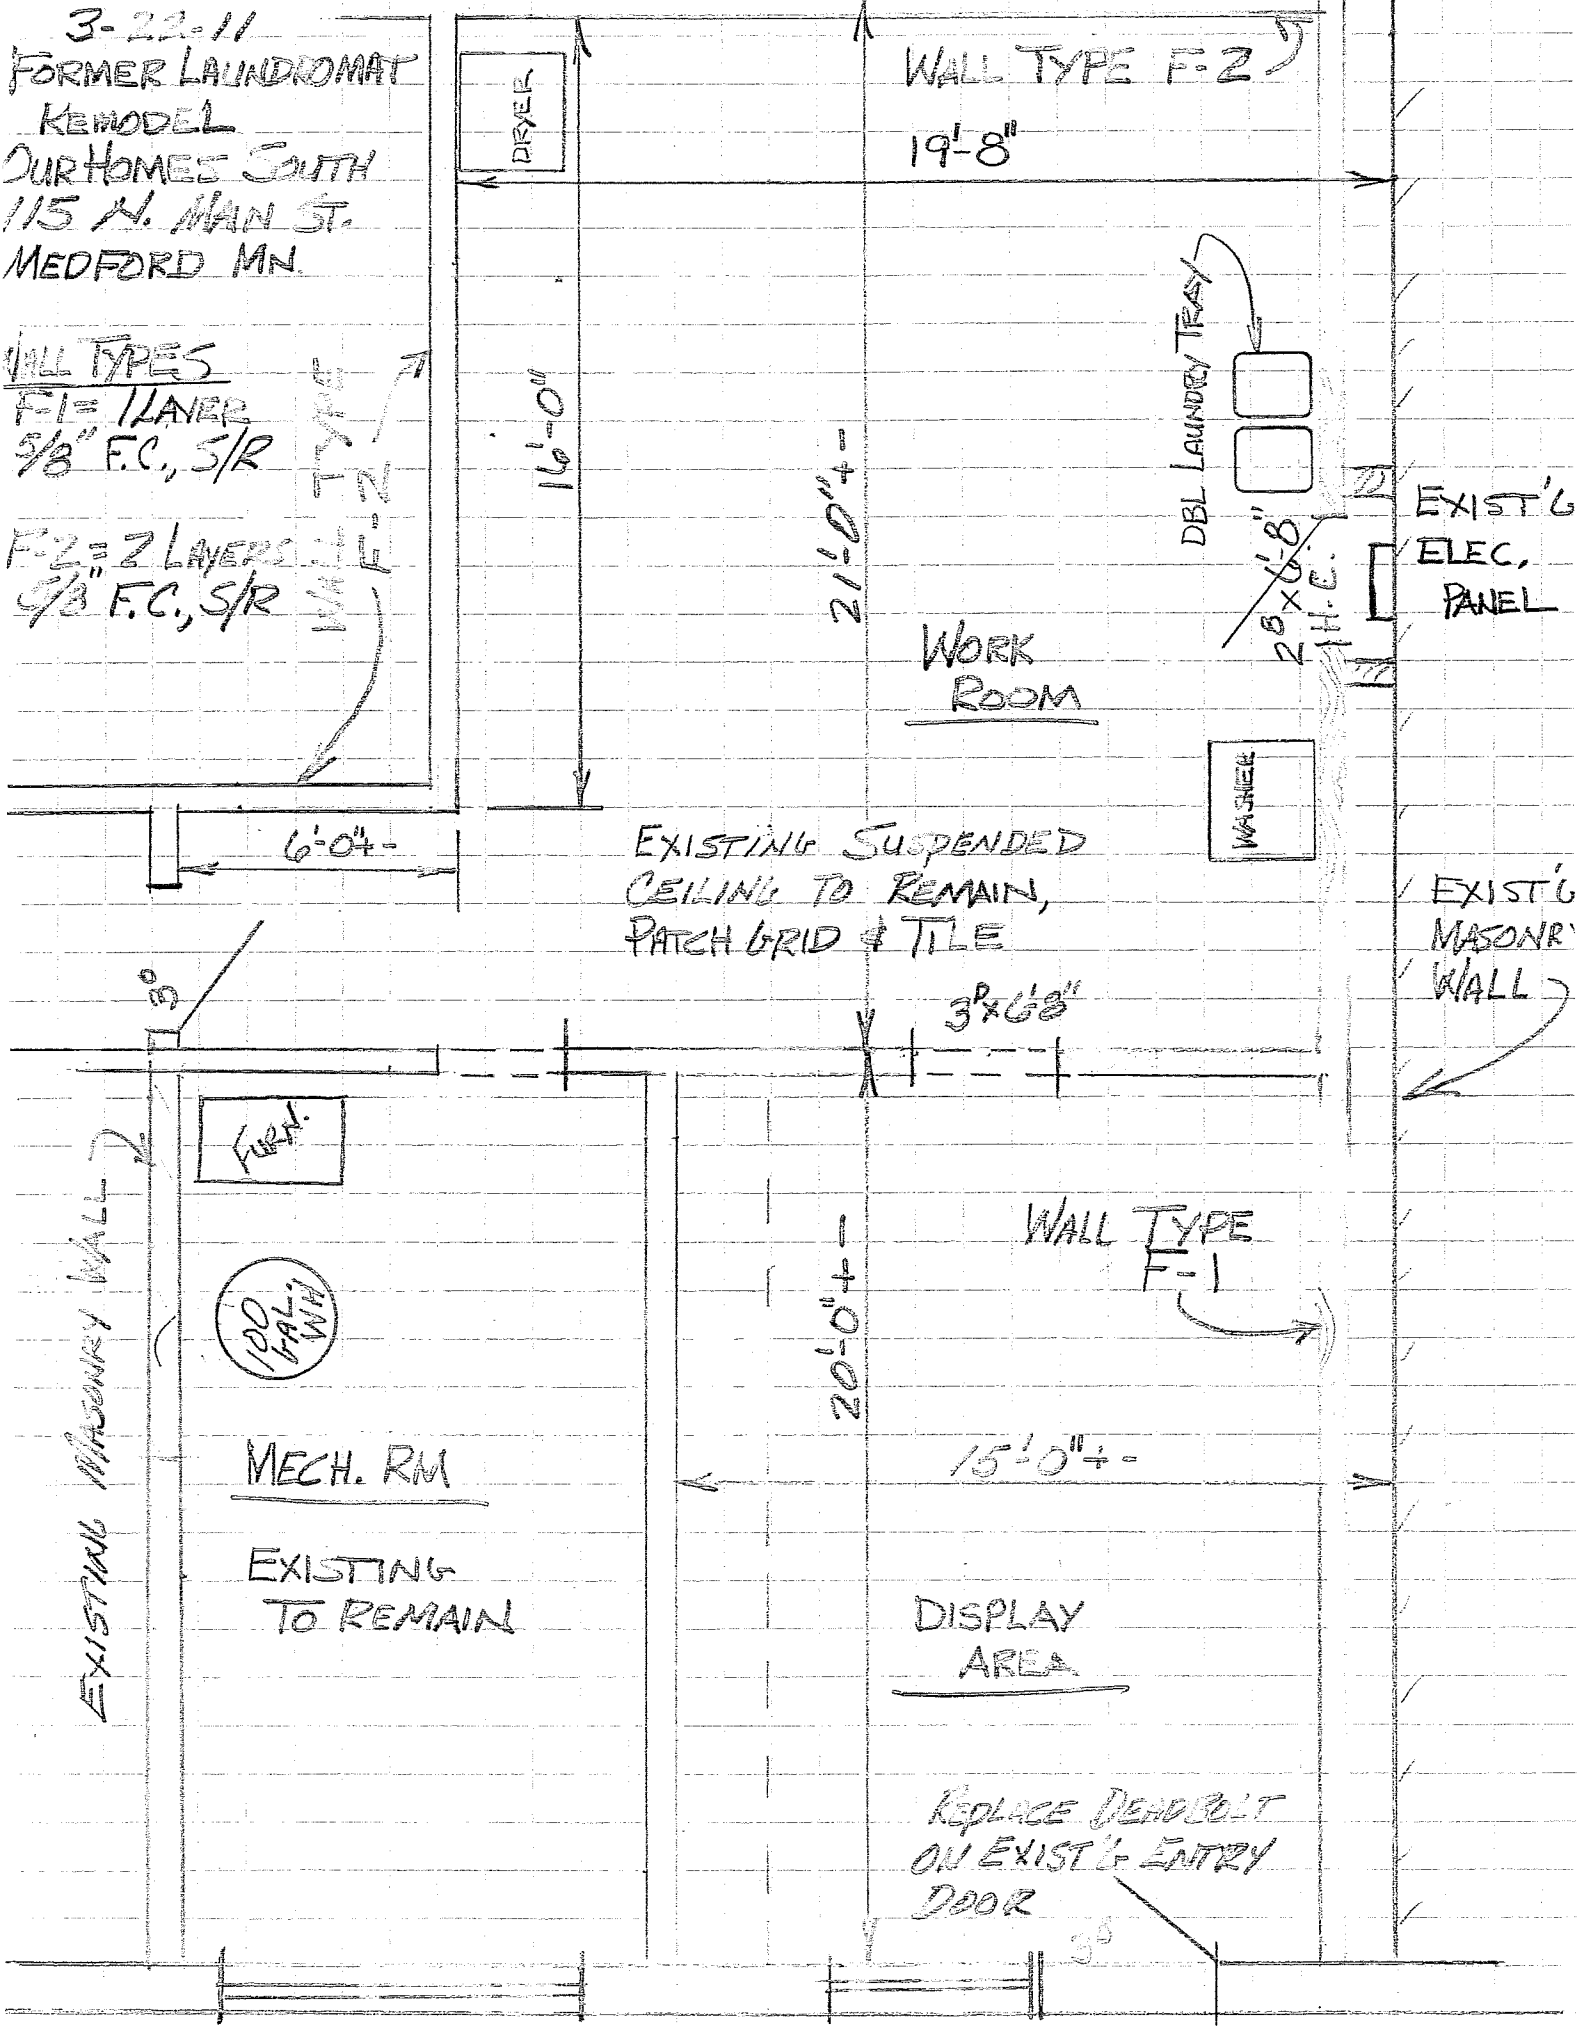 3-22-11
FORMER LAUNDROMAT
REMODEL
OUR HOMES SOUTH
115 N. MAIN ST.
MEDFORD MN.
WALL TYPES
F-1 = 1 LAYER
5/8" F.C., S/R
F-2 = 2 LAYERS
5/8" F.C., S/R
WALL TYPE
F-2
DRYER
WALL TYPE F-2
19'-8"
16'-0"
21'-0"+-
DBL LAUNDRY TRAY
2⁸ x 6'-8"
H.C.
EXIST'G
ELEC.
PANEL
WORK
ROOM
WASHER
6'-0"+-
EXISTING SUSPENDED
CEILING TO REMAIN,
PATCH GRID & TILE
EXIST'G
MASONRY
WALL
3⁰
3⁰ x 6'8"
FURN.
EXISTING MASONRY WALL
100
GAL.
WH
WALL TYPE
F-1
20'-0"+-
MECH. RM
15'-0"+-
EXISTING
TO REMAIN
DISPLAY
AREA
REPLACE DEADBOLT
ON EXIST'G ENTRY
DOOR
3⁰